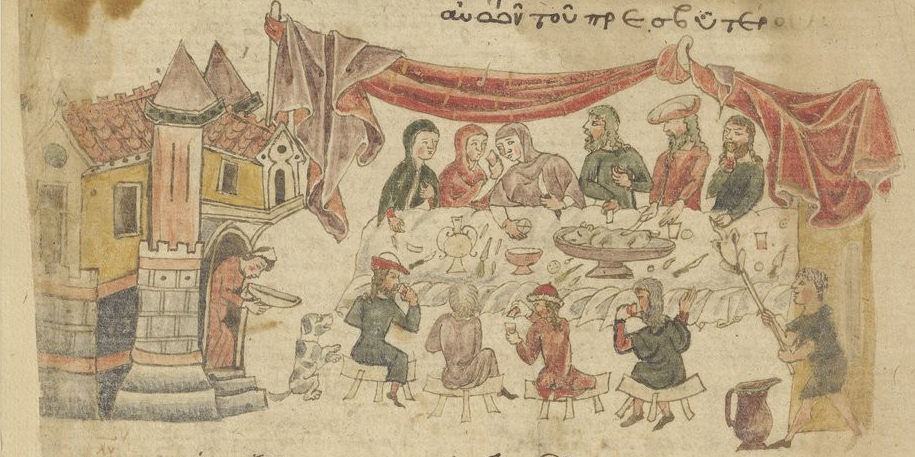 αὐτῶν τοῦ πρεσβύτερου